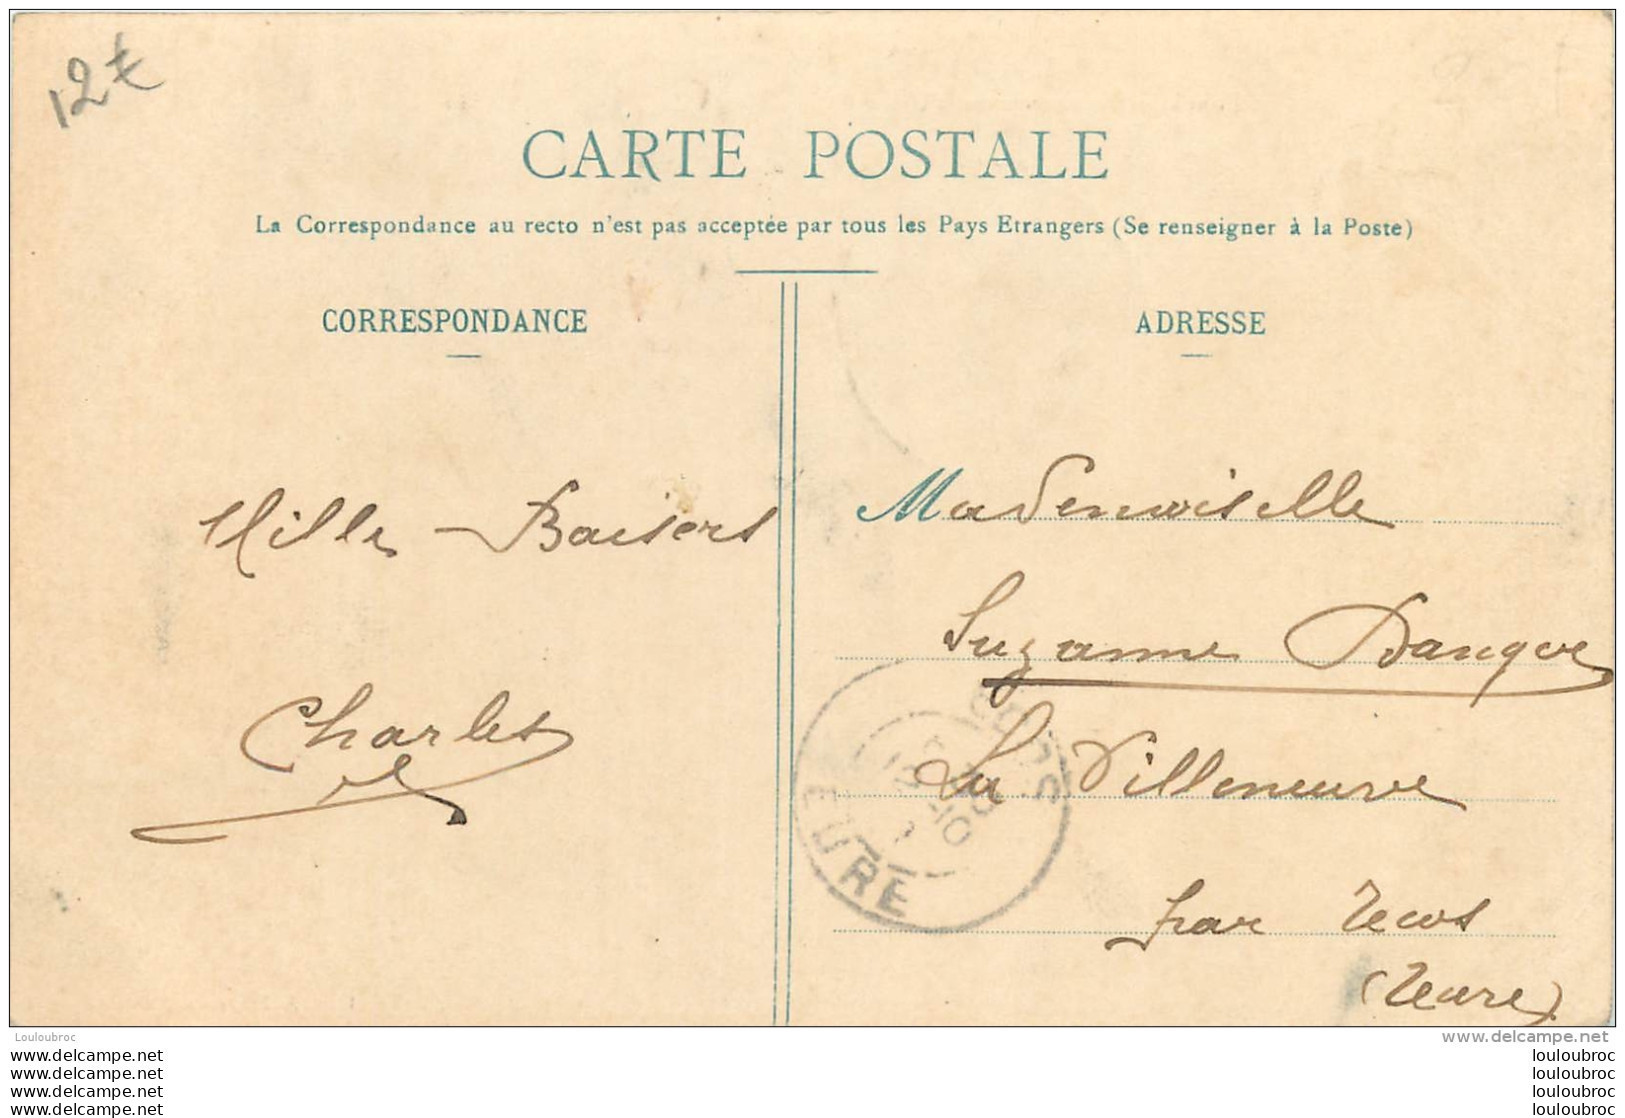 12€
CARTE POSTALE
La Correspondance au recto n'est pas acceptée par tous les Pays Etrangers (Se renseigner à la Poste)
CORRESPONDANCE
Mille Baisers
Charles
ADRESSE
Mademoiselle
Suzanne
La Villeneuve
par Ecos
(Eure)
EURE
Louloubroc
www.delcampe.net
www.delcampe.net
www.delcampe.net
www.delcampe.net
www.delcampe.net
louloubroc
louloubroc
louloubroc
louloubroc